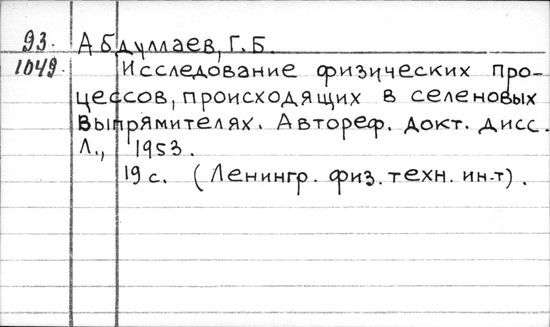 93. Абдуллаев, Г.Б.
1049. Исследование физических про-
цессов, происходящих в селеновых
выпрямителях. Автореф. докт. дисс.
Л., 1953.
19 с. (Ленингр. физ. техн. ин-т).